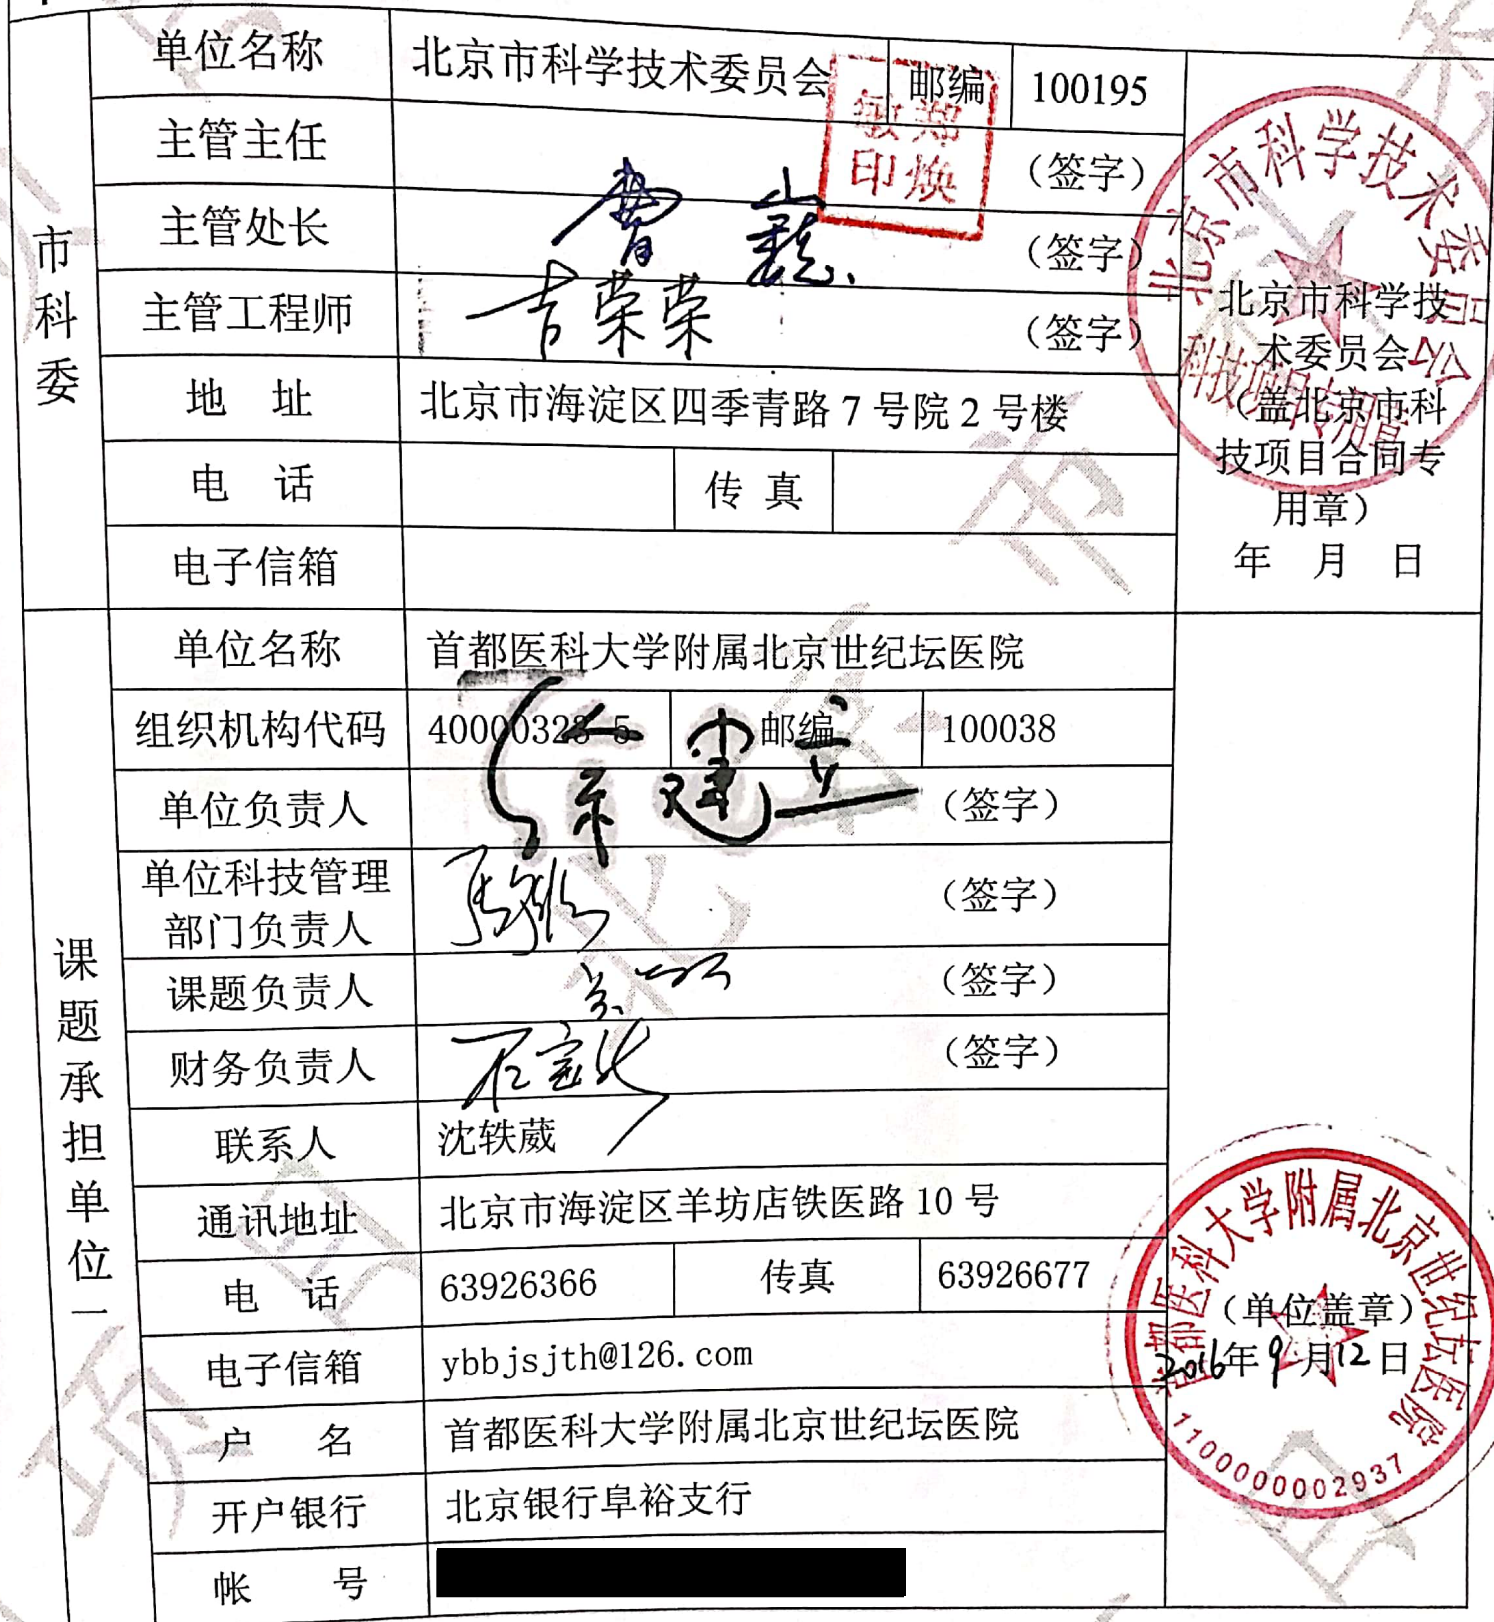 市科委
单位名称 北京市科学技术委员会 邮编 100195
主管主任 (签字)
郑焕敏印
主管处长 (签字)
主管工程师 吉荣荣 (签字)
地 址 北京市海淀区四季青路 7 号院 2 号楼
电 话 传 真
电子信箱
北京市科学技术委员会
科技项目专用章
北京市科学技
术委员会
(盖北京市科
技项目合同专
用章)
年 月 日
课题承担单位一
单位名称 首都医科大学附属北京世纪坛医院
组织机构代码 邮编 100038
单位负责人 徐建立 (签字)
单位科技管理
部门负责人 (签字)
课题负责人 (签字)
财务负责人 (签字)
联系人 沈轶葳
通讯地址 北京市海淀区羊坊店铁医路 10 号
电 话 63926366 传真 63926677
电子信箱 ybbjsjth@126.com
户 名 首都医科大学附属北京世纪坛医院
开户银行 北京银行阜裕支行
帐 号
首都医科大学附属北京世纪坛医院
(单位盖章)
2016年9月12日
1100000002937